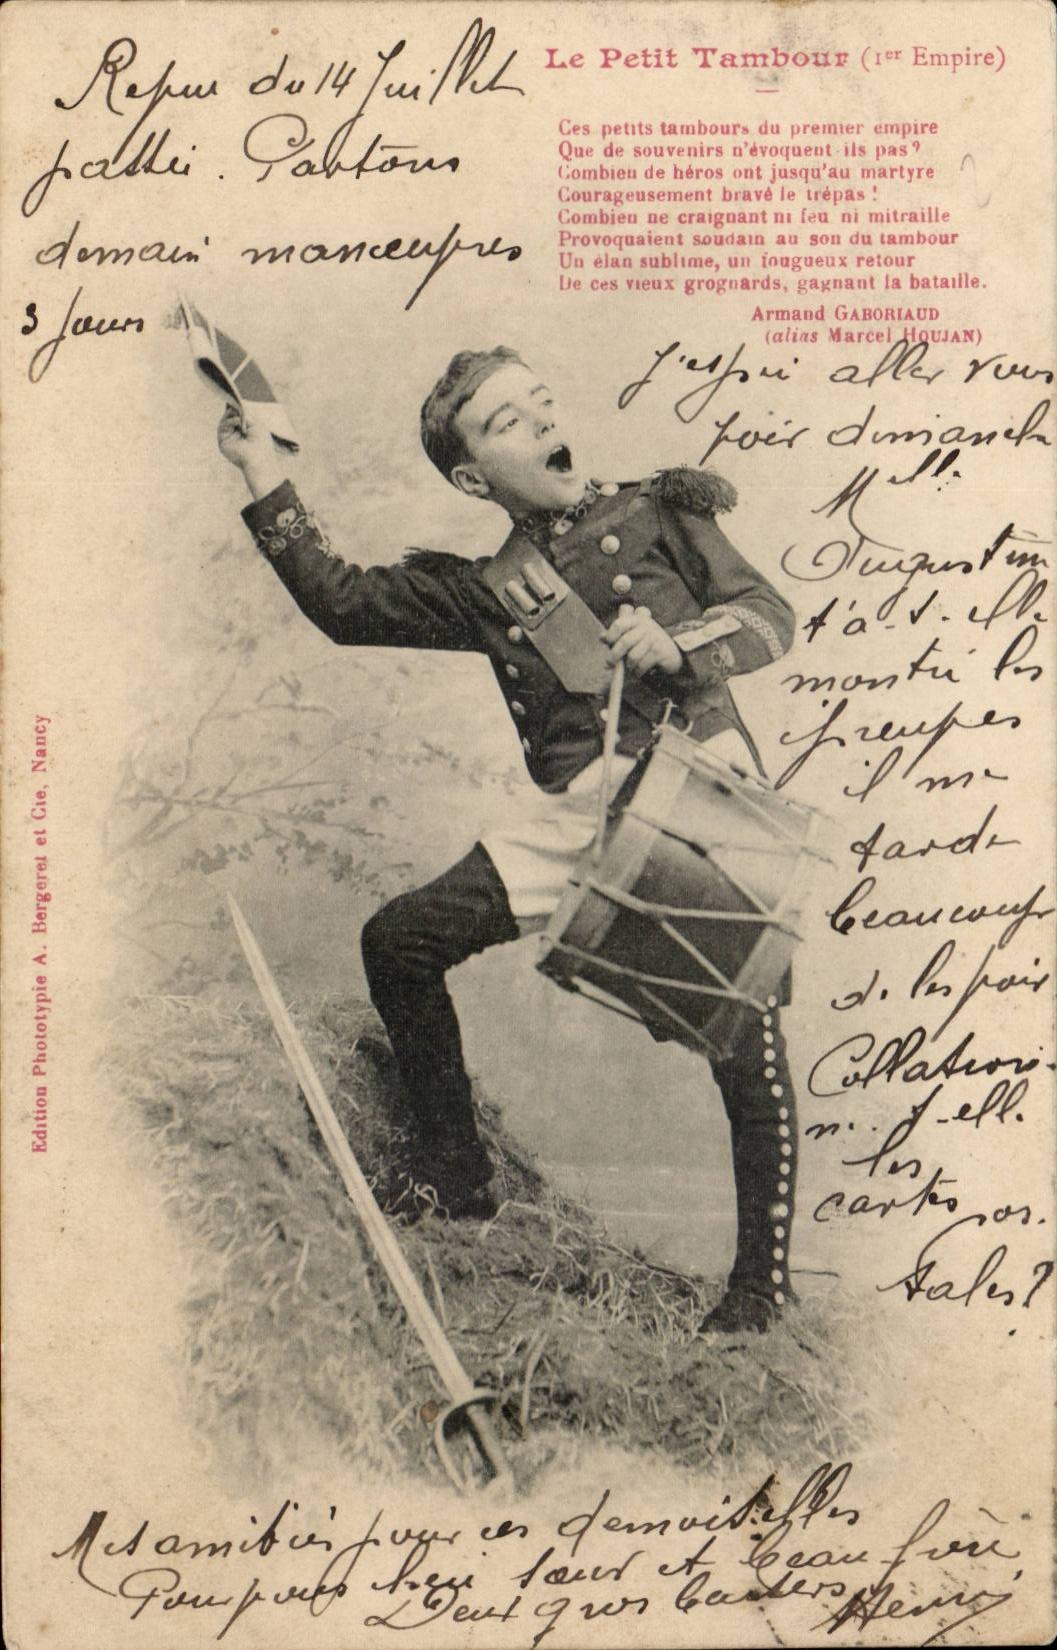 Le Petit Tambour (1er Empire)
Ces petits tambours du premier empire
Que de souvenirs n'évoquent ils pas?
Combien de héros ont jusqu'au martyre
Courageusement bravé le trépas!
Combien ne craignant ni feu ni mitraille
Provoquaient soudain au son du tambour
Un élan sublime, un fougueux retour
De ces vieux grognards, gagnant la bataille.
Armand GABORIAUD
(alias Marcel HOUJAN)
Revue du 14 Juillet
passée. Partons
demain manœuvres
3 jours
J'espère aller vous
voir dimanche
Melle
Augustine
t'a-t-elle
montré les
épreuves
il me
tarde
beaucoup
de les voir
Collation-
ne-t-elle
les
cartes pos-
tales?
Mes amitiés pour ces demoiselles
Pour vous chère sœur et beau frère
Deux gros baisers Henri
Edition Phototypie A. Bergeret et Cie, Nancy